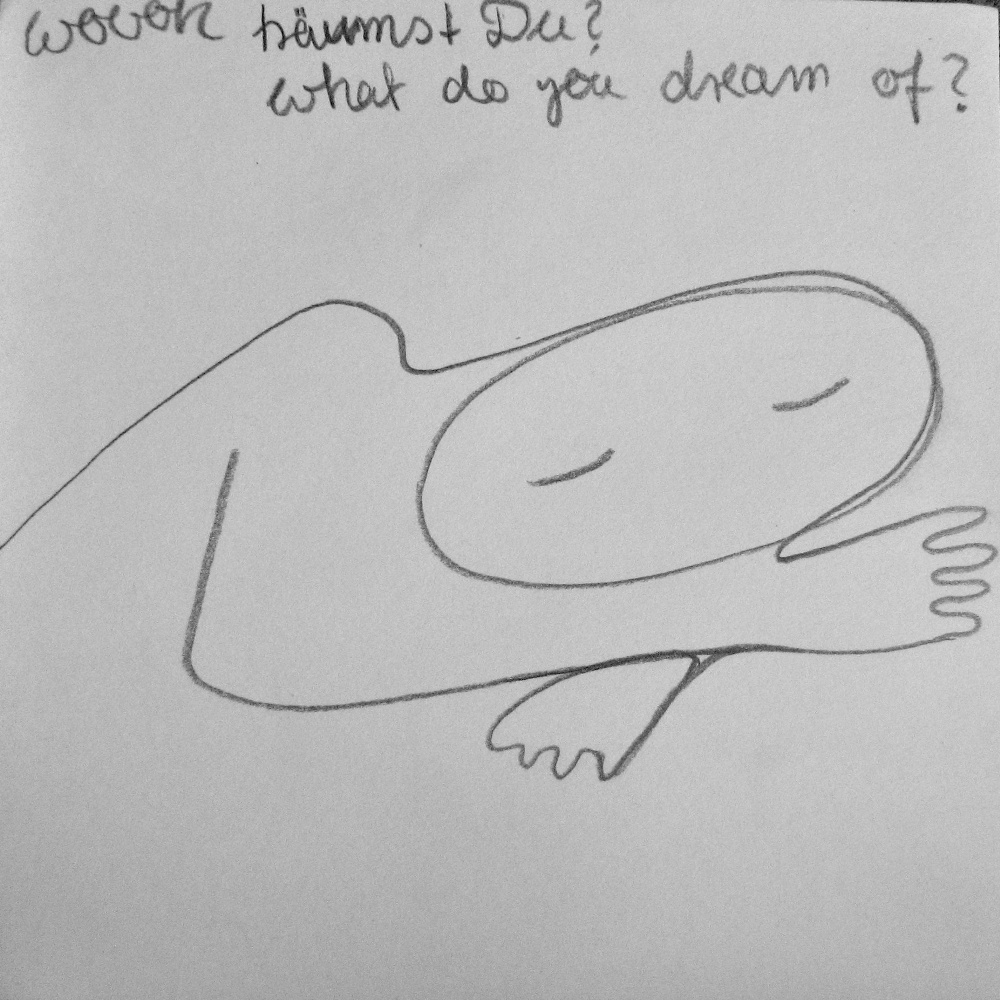 wovon träumst Du?
what do you dream of?